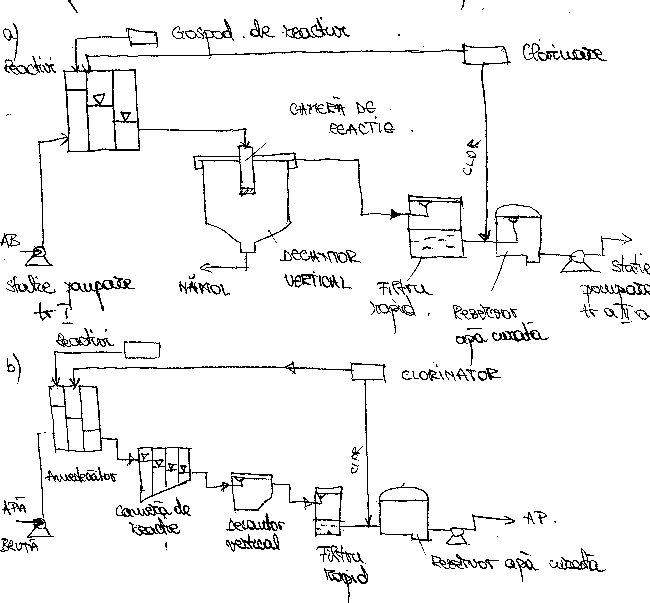 a)
Gospod. de reactivi
reactivi
Clorinare
CAMERĂ DE
REACTIE
CLOR
AB
DECANTOR
VERTICAL
NĂMOL
Statie pompare
tr I
Filtru
rapid
Rezervor
apă curată
Statie
pompare
tr a II a
reactivi
b)
CLORINATOR
CLOR
Amestecător
Cameră de
reactie
decantor
vertical
Filtru
rapid
APĂ
BRUTĂ
AP.
Rezervor apă curată